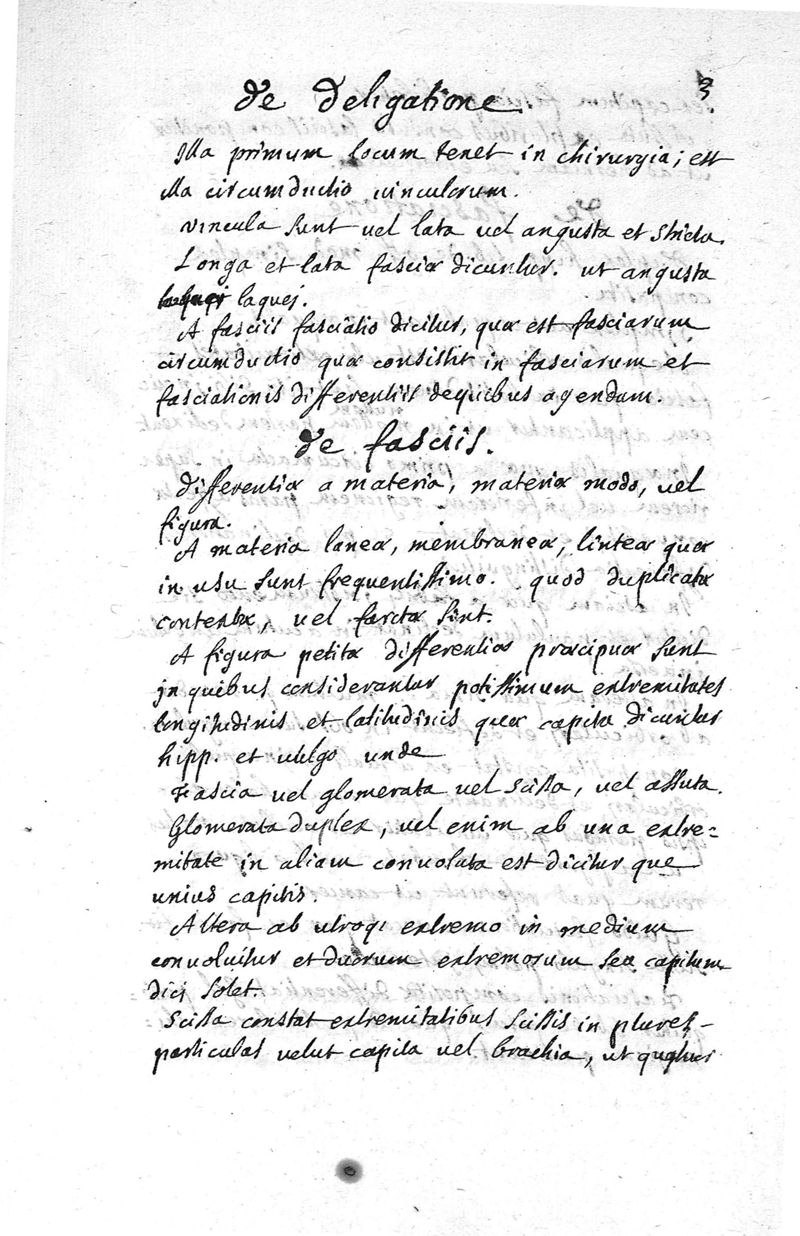 de deligatione. 3
Illa primum locum tenet in chirurgia; est
illa circumductio vinculorum.
vincula sunt vel lata vel angusta et stricta.
Longa et lata fasciæ dicuntur. ut angusta
laquei.
A fasciis fasciatio dicitur, quæ est fasciarum
circumductio quæ consistit in fasciarum et
fasciationis differentiis de quibus agendum.
de fasciis.
differentiæ a materia, materiæ modo, vel
figura.
A materia laneæ, membraneæ, linteæ quæ
in usu sunt frequentissimo. quod duplicatæ
contextæ, vel farctæ sint.
A figura petitæ differentiæ præcipuæ sunt
in quibus considerantur potissimum extremitates
longitudinis et latitudinis quæ capita dicuntur
hipp. et vulgo unde
Fascia vel glomerata vel scissa, vel assuta.
Glomerata duplex, vel enim ab una extre=
mitate in aliam convoluta est dicitur que
unius capitis.
Altera ab utroq; extremo in medium
convolvitur et duorum extremorum seu capitum
dici solet.
Scissa constat extremitatibus scissis in plures-
particulas velut capita vel brachia, ut